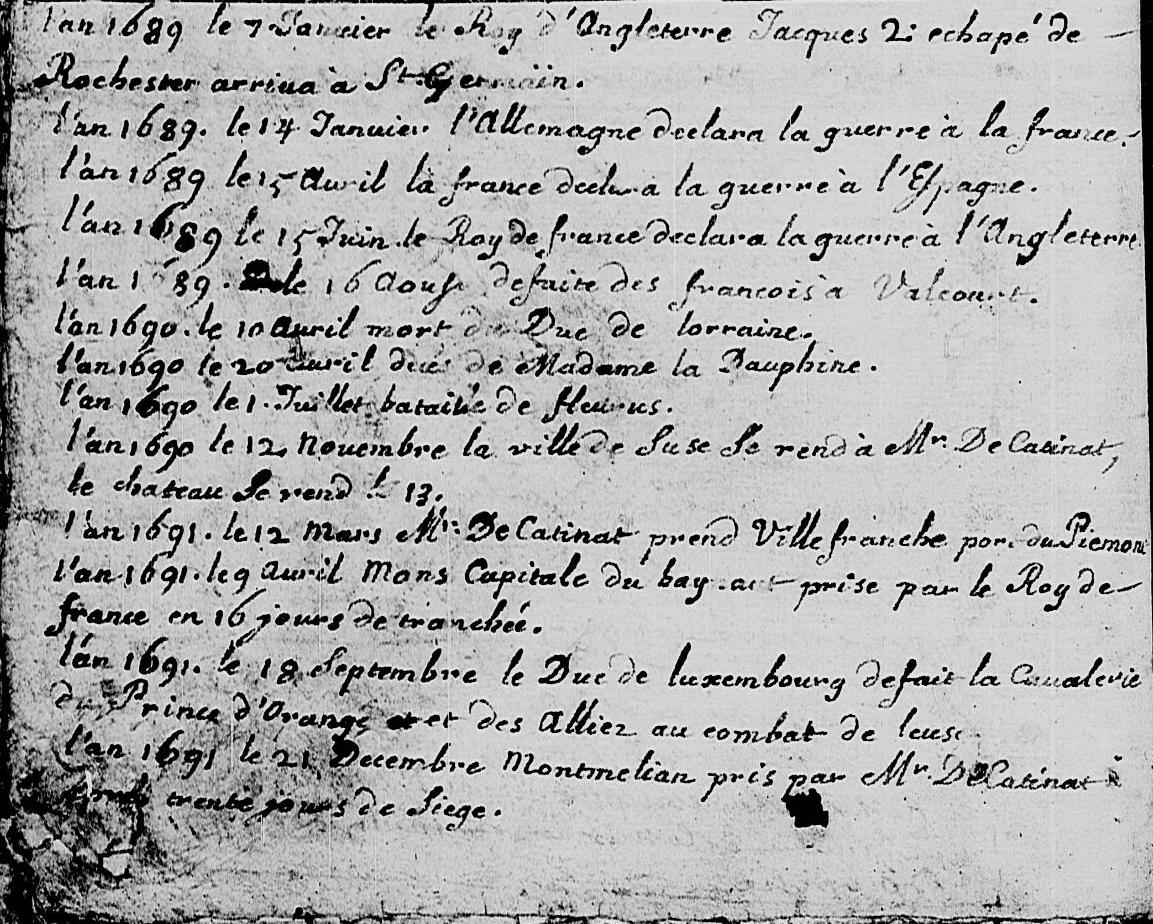 l'an 1689 le 7 Januier le Roy d'Angleterre Jacques 2: echapé de
Rochester arriua à St Germäin.
l'an 1689. le 14 Januier l'Allemagne declara la guerre à la france.
l'an 1689 le 15 Auril la france declara la guerre à l'Espagne.
l'an 1689 le 15 Juin le Roy de france declara la guerre à l'Angleterre
l'an 1689. le 16 Aoust defaite des francois à Valcourt.
l'an 1690. le 10 auril mort du Duc de lorraine.
l'an 1690 le 20 auril de Madame la Dauphine.
l'an 1690 le 1. Juillet bataille de fleurus.
l'an 1690 le 12 Nouembre la ville de Suse Se rend à Mr. De Catinat,
le chateau Se rend le 13.
l'an 1691. le 12 Mars Mr. De Catinat prend Ville franche por. du Piemont
l'an 1691. le 9 auril Mons Capitale du hay prise par le Roy de
france en 16 jours de tranchée.
l'an 1691. le 18 Septembre le Duc de luxembourg defait la Caualerie
du Prince d'Orange et des Alliez au combat de leuse
l'an 1691 le 21 Decembre Montmelian pris par Mr. De Catinat
trente jours de Siege.